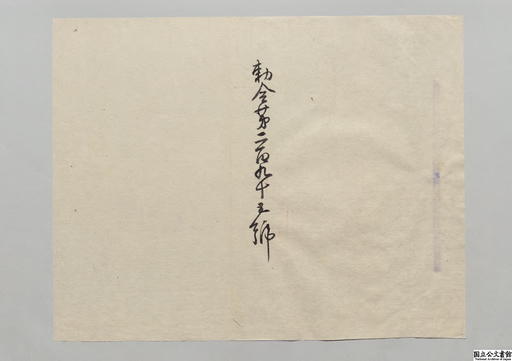 勅令第二百九十五號
国立公文書館
National Archives of Japan